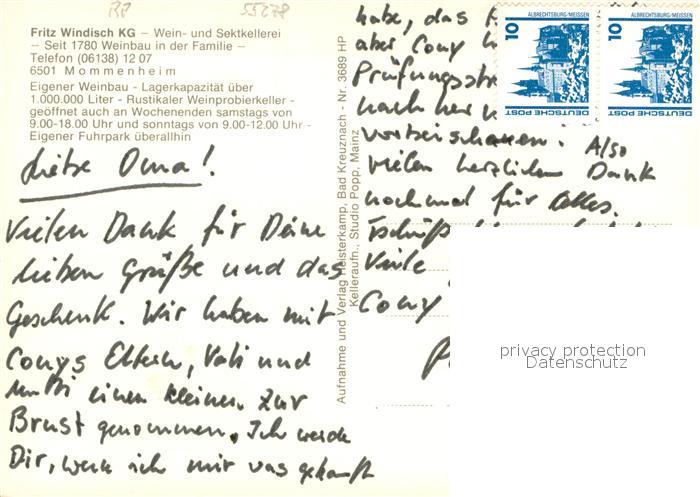 RP
55278
Fritz Windisch KG – Wein- und Sektkellerei
– Seit 1780 Weinbau in der Familie –
Telefon (06138) 12 07
6501 Mommenheim
Eigener Weinbau - Lagerkapazität über
1.000.000 Liter - Rustikaler Weinprobierkeller -
geöffnet auch an Wochenenden samstags von
9.00-18.00 Uhr und sonntags von 9.00-12.00 Uhr -
Eigener Fuhrpark überallhin
Liebe Oma!
Vielen Dank für Deine
lieben Grüße und das
Geschenk. Wir haben mit
Conys Eltern, Vati und
Mutti einen kleinen zur
Brust genommen. Ich werde
Dir, wenn ich mir was gekauft
Aufnahme und Verlag Heisterkamp, Bad Kreuznach - Nr. 3689 HP
Kelleraufn., Studio Popp, Mainz
habe, das
aber Cony
Prüfungsstre
nachher
vorbeischauen. Also
vielen herzlichen Dank
nochmal für Alles.
Tschüß
Viele
Cony
ALBRECHTSBURG·MEISSEN
10
DEUTSCHE POST
ALBRECHTSBURG·MEISSEN
10
DEUTSCHE POST
privacy protection
Datenschutz